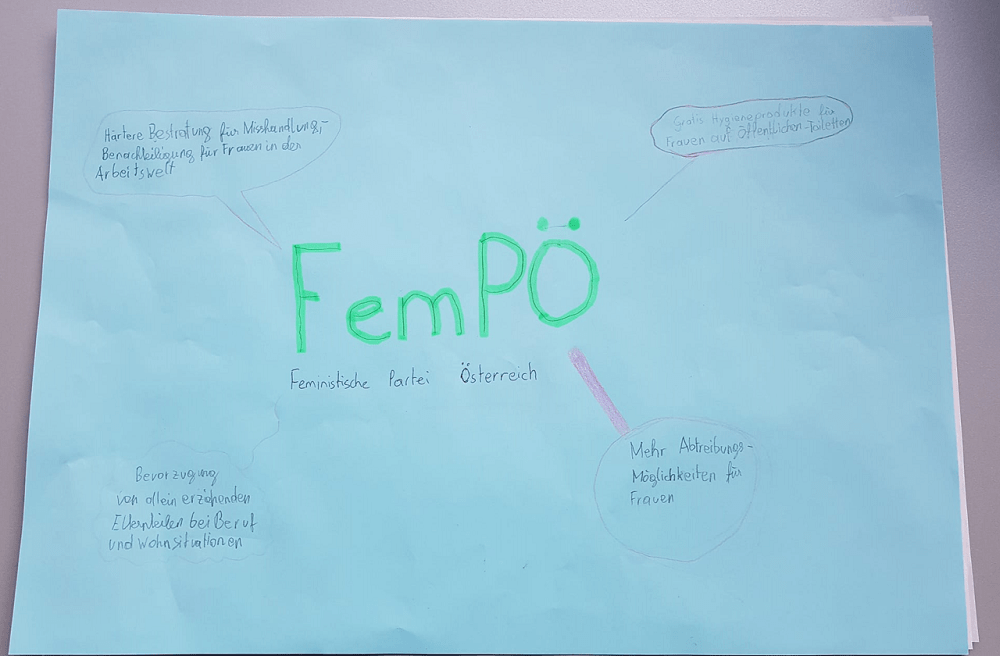 Härtere Bestrafung für Misshandlung,-
Benachteiligung für Frauen in der
Arbeitswelt
Gratis Hygieneprodukte für
Frauen auf Öffentlichen-Toiletten
FemPÖ
Feministische Partei Österreich
Bevorzugung
von allein erziehenden
Elternteilen bei Beruf
und Wohnsituationen
Mehr Abtreibungs-
Möglichkeiten für
Frauen